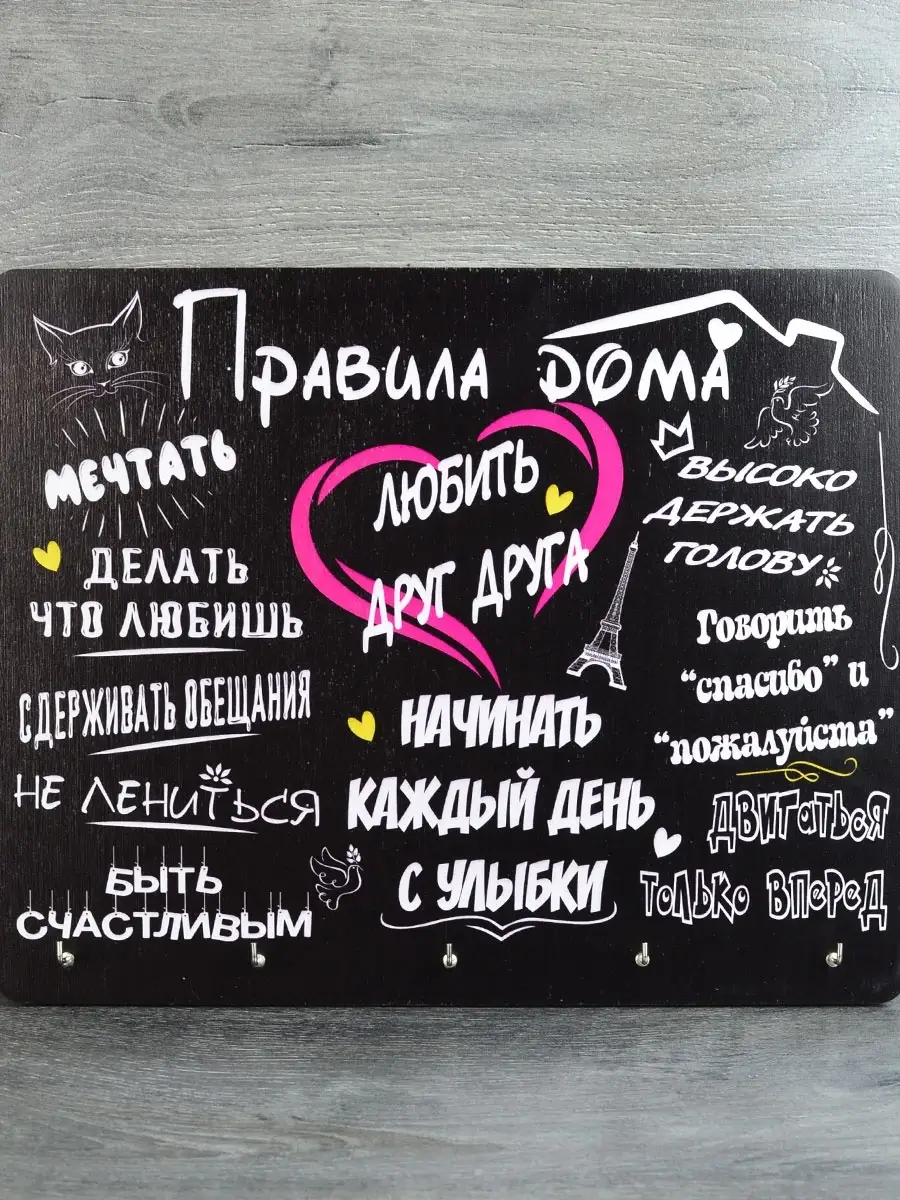 Правила дома
МЕЧТАТЬ
ДЕЛАТЬ
ЧТО ЛЮБИШЬ
СДЕРЖИВАТЬ ОБЕЩАНИЯ
НЕ ЛЕНИТЬСЯ
БЫТЬ
СЧАСТЛИВЫМ
ЛЮБИТЬ
ДРУГ ДРУГА
НАЧИНАТЬ
КАЖДЫЙ ДЕНЬ
С УЛЫБКИ
ВЫСОКО
ДЕРЖАТЬ
ГОЛОВУ
Говорить
“спасибо” и
“пожалуйста”
ДВИГАТЬСЯ
ТОЛЬКО ВПЕРЕД